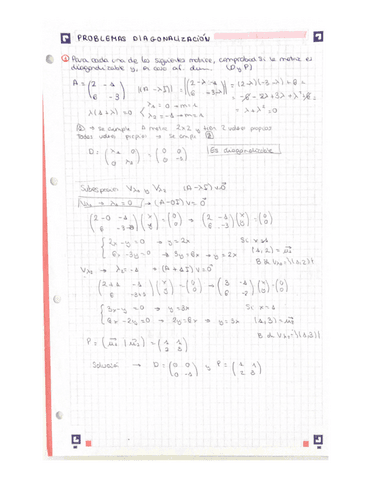 PROBLEMAS DIAGONALIZACIÓN
① Para cada una de las siguientes matrices, comprobad si la matriz es
diagonalizable y, en caso af. dar (D y P)
A = (2 -1; 6 -3) |(A-λI)| = |2-λ -1; 6 -3-λ| = (2-λ)(-3-λ)+6 =
= -6-2λ+3λ+λ²+6 =
= λ+λ² = 0
λ(λ+1) = 0 λ₁ = 0 → m=1
λ₂ = -1 → m=1
→ Se cumple A matriz 2x2 y tiene 2 valores propios
→ Se cumple ②
D = (λ₁ 0; 0 λ₂) = (0 0; 0 -1) Es diagonalizable
Subespacios Vλ₁ y Vλ₂ (A-λI)v=0
Vλ₁ → λ₁ = 0 → (A-0I)v=0
(2-0 -1; 6 -3-0)(x; y) = (0; 0) → (2 -1; 6 -3)(x; y) = (0; 0)
2x-y=0 → y=2x Si x=1
6x-3y=0 → 3y=6x → y=2x (1,2) = u₁
B. de Vλ₁ = {(1,2)}
Vλ₂ → λ₂=-1 → (A+1I)v=0
(2+1 -1; 6 -3+1)(x; y) = (0; 0) → (3 -1; 6 -2)(x; y) = (0; 0)
3x-y=0 → y=3x Si x=1
6x-2y=0 → 2y=6x → y=3x (1,3) = u₂
B. de Vλ₂ = {(1,3)}
P = (u₁ | u₂) = (1 1; 2 3)
Solución → D = (0 0; 0 -1) y P = (1 1; 2 3)